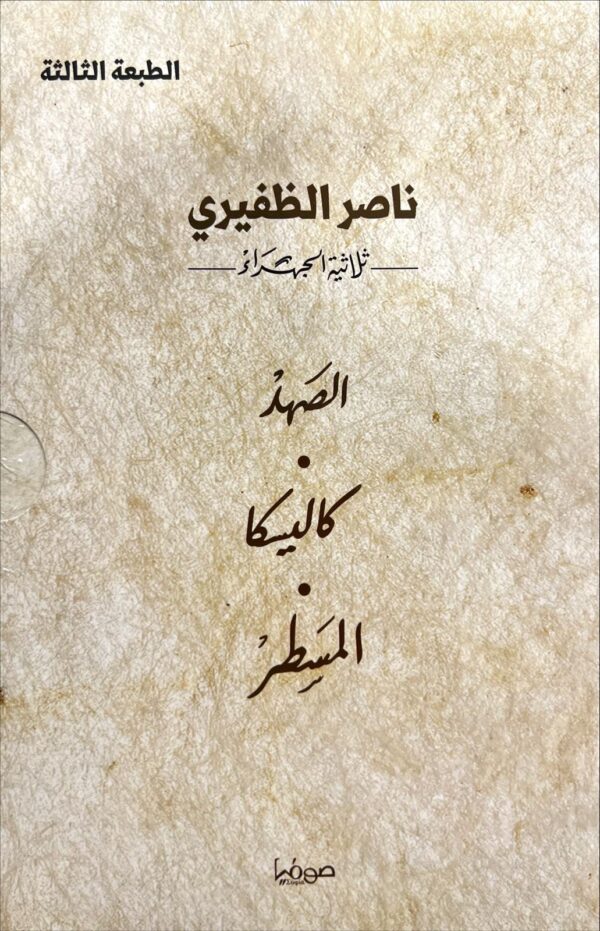 الطبعة الثالثة
ناصر الظفيري
ثلاثية الجهراء
الصَهدْ
كاليسكا
المَسطِرْ
صوفيا